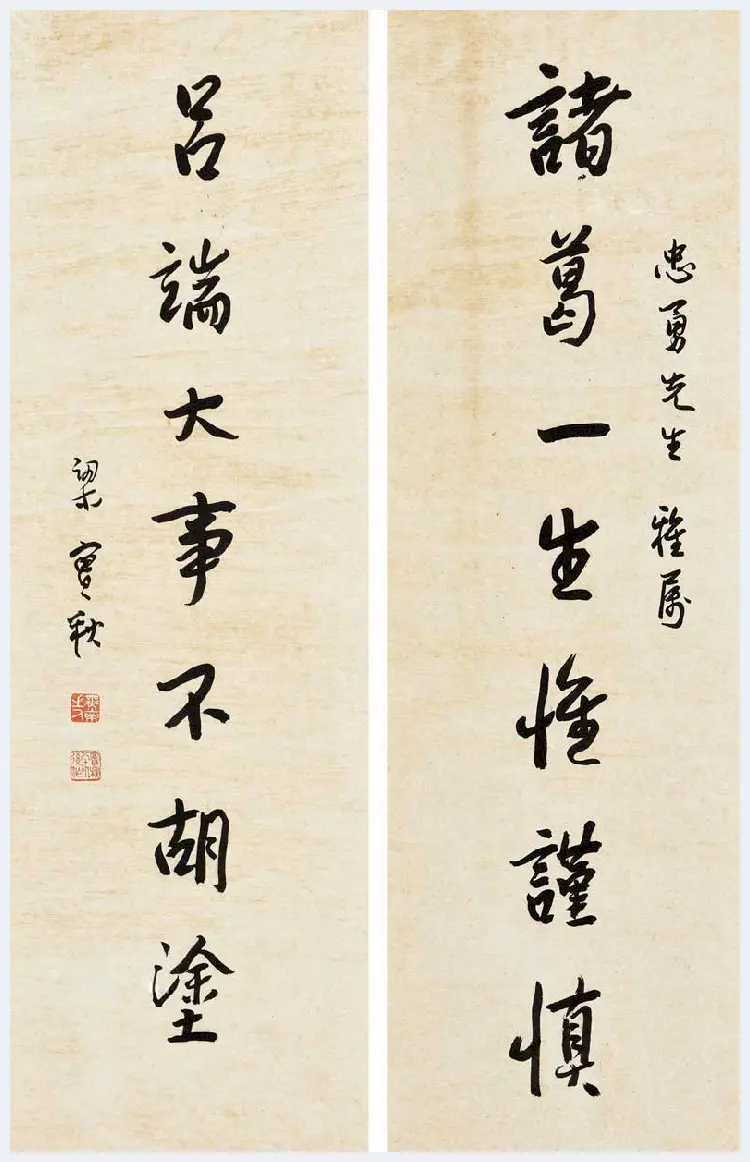 忠勇先生 雅属
諸葛一生惟謹慎
呂端大事不胡塗
梁實秋